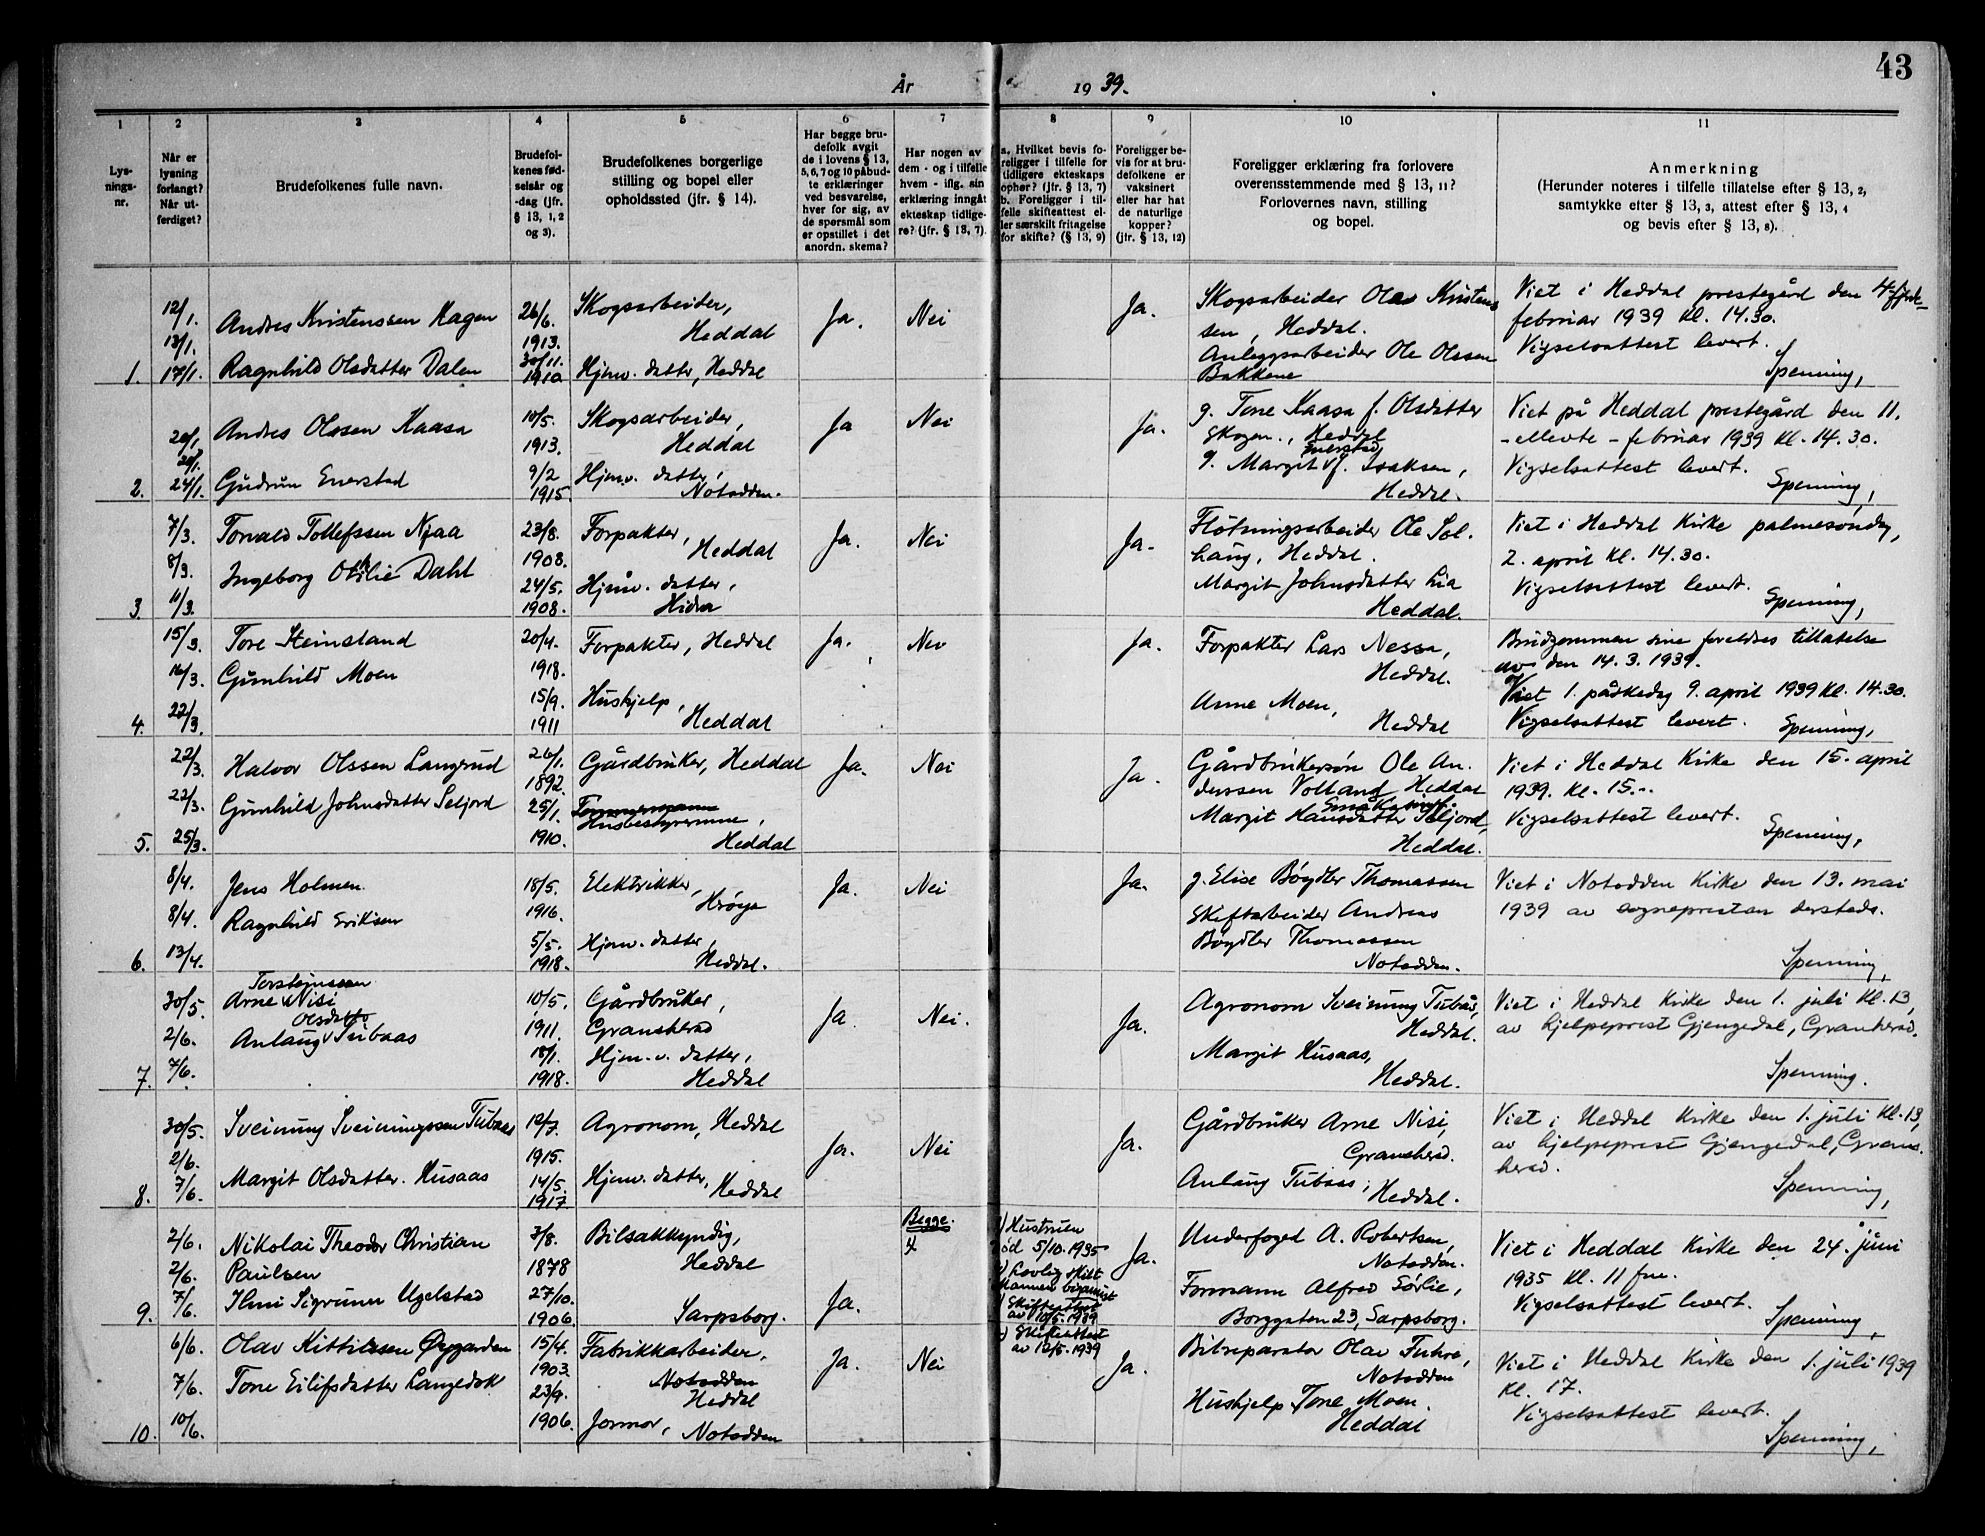 43
År 1939.
1 2 3 4 5 6 7 8 9 10 11
Lysningsnr.
Når er lysning forlangt? Når utferdiget?
Brudefolkenes fulle navn.
Brudefolkenes fødselsår og -dag (jfr. § 13, 1, 2 og 3).
Brudefolkenes borgerlige stilling og bopel eller opholdssted (jfr. § 14).
Har begge brudefolk avgit de i lovens § 13, 5, 6, 7 og 10 påbudte erklæringer ved besvarelse, hver for sig, av de spørsmål som er opstillet i det anordn. skema?
Har nogen av dem - og i tilfelle hvem - iflg. sin erklæring inngåt ekteskap tidligere? (jfr. § 13, 7).
a. Hvilket bevis foreligger i tilfelle for tidligere ekteskaps ophør? (jfr. § 13, 7) b. Foreligger i tilfelle skifteattest eller særskilt fritagelse for skifte? (§ 13, 9)
Foreligger bevis for at brudefolkene er vaksinert eller har hat de naturlige kopper? (jfr. § 13, 12)
Foreligger erklæring fra forlovere overensstemmende med § 13, 11? Forlovernes navn, stilling og bopel.
Anmerkning
(Herunder noteres i tilfelle tillatelse efter § 13, 2, samtykke efter § 13, 3, attest efter § 13, 4 og bevis efter § 13, 8).
1. 12/1. 13/1. 17/1.
Andres Kristenssen Hagen
Ragnhild Olsdatter Dalen
26/6. 1913.
30/11. 1910
Skogsarbeider, Heddal
Hjemv. datter, Heddal
Ja. Nei Ja.
Skogsarbeider Olav Kristensen, Heddal.
Anleggsarbeider Ole Olssen Bakkene
Viet i Heddal prestegård den 4-fjerde-
februar 1939 kl. 14.30.
Vigselsattest levert.
Spenning,
2. 20/1 24/1.
Andres Olssen Kaasa
Gudrun Enerstad
10/5. 1913.
9/2 1915.
Skogsarbeider, Heddal
Hjemv. datter, Notodden.
Ja Nei Ja.
g. Tone Kaasa f. Olsdatter
Skogen., Heddal
g. Margit Enerstad f. Isaksen,
Heddal.
Viet på Heddal prestegård den 11.
-ellevte- februar 1939 kl. 14.30.
Vigselsattest levert.
Spenning,
3 7/3. 8/3. 11/3.
Torvald Tollefssen Njaa
Ingeborg Otilie Dahl
23/8. 1908.
24/5. 1908.
Forpakter, Heddal
Hjemv. datter, Hidra
Ja. Nei Ja.
Fløtningsarbeider Ole Sel-
Laug, Heddal.
Margit Johnsdatter Lia
Heddal.
Viet i Heddal Kirke palmesøndag,
2. april kl. 14.30.
Vigselsattest levert.
Spenning,
4. 15/3. 16/3. 22/3.
Tore Steinsland
Gunhild Moen
20/4. 1918.
15/9. 1911
Forpakter, Heddal
Hushjelp, Heddal
Ja. Nei Ja.
Forpakter Lars Nessa,
Heddal.
Anne Moen,
Heddal
Brudgommen sine foreldres tillatelse
av den 14.3.1939.
Viet 1. påskedag 9. april 1939 kl. 14.30.
Vigselsattest levert.
Spenning,
5. 22/3. 22/3. 25/3.
Halvor Olssen Langrud
Gunhild Johnsdatter Seljord
26/1. 1892.
25/1. 1910.
Gårdbruker, Heddal
Husbestyrerinne, Heddal
Ja. Nei Ja.
Gårdbrukersøn Ole An-
derssen Volland, Heddal
Margit Hansdatter Seljord,
Heddal.
Viet i Heddal Kirke den 15. april
1939. kl. 15.-.
Vigselsattest levert.
Spenning,
6. 8/4. 8/4. 13/4.
Jens Holmen.
Ragnhild Eriksen
18/5. 1916.
5/5. 1918.
Elektriker, Herøya
Hjemv. datter, Heddal.
Ja. Nei Ja.
g. Elise Bøydler Thomassen
Skiftarbeider Andreas
Bøydler Thomassen
Notodden.
Viet i Notodden Kirke den 13. mai
1939 av sogneprestan dersteds.
Spenning,
7. 30/5. 2/6. 7/6.
Arne Torsteinssen Nisi
Anlaug Olsdatter Tubaas
10/5. 1911.
18/1. 1918.
Gårdbruker, Gransherad
Hjem.v. datter, Heddal
Ja. Nei. Ja.
Agronom Sveinung Tubås,
Heddal.
Margit Husaas,
Heddal.
Viet i Heddal Kirke den 1. juli kl. 13,
av hjelpeprest Gjengedal, Gransherad.
Spenning.
8. 30/5. 2/6. 7/6.
Sveinung Sveinungssen Tubaas
Margit Olsdatter Husaas
12/7. 1915.
14/5. 1917.
Agronom, Heddal
Hjemv. datter, Heddal
Ja. Nei Ja.
Gårdbruker Arne Nisi,
Gransherad.
Anlaug Tubaas,
Heddal.
Viet i Heddal Kirke den 1. juli kl. 13,
av hjelpeprest Gjengedal, Grans-
herad.
Spenning,
9. 2/6. 2/6. 7/6.
Nikolai Theodor Christian
Paulsen
Ilmi Sigrunn Ugelstad
3/8. 1878
27/10. 1906.
Bilsakkyndig, Heddal
Sarpsborg.
Ja. Begge.
Hustruen
død 5/10.1935
Lovlig skilt
Skifteattest
av 10/5.1939
Skifteattest
av 12/5.1939
Ja.
Underfoged A. Robertsen,
Notodden.
Formann Alfred Sørlie,
Borggaten 23, Sarpsborg.
Viet i Heddal Kirke den 24. juni
1935 kl. 11 fm.
Vigselsattest levert.
Spenning,
10. 6/6. 7/6. 10/6.
Olav Kittilssen Øygarden
Tone Eilifsdatter Langedok
15/4. 1903.
23/9. 1906.
Fabrikkarbeider,
Notodden
Heddal
Jormor, Notodden
Ja. Nei Ja.
Bilreparatør Olav Fuhre,
Notodden
Hushjelp Tone Moen.
Heddal
Viet i Heddal Kirke den 1. juli 1939
kl. 17.
Vigselsattest levert.
Spenning,